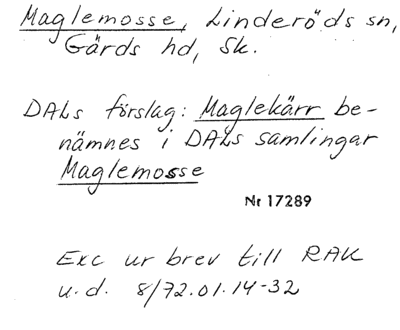 Maglemosse, Linderöds sn,
Gärds hd, Sk.
DALs förslag: Maglekärr be-
nämnes i DALs samlingar
Maglemosse
Nr 17289
Exc ur brev till RAK
u.d. 8/72.01.14-32